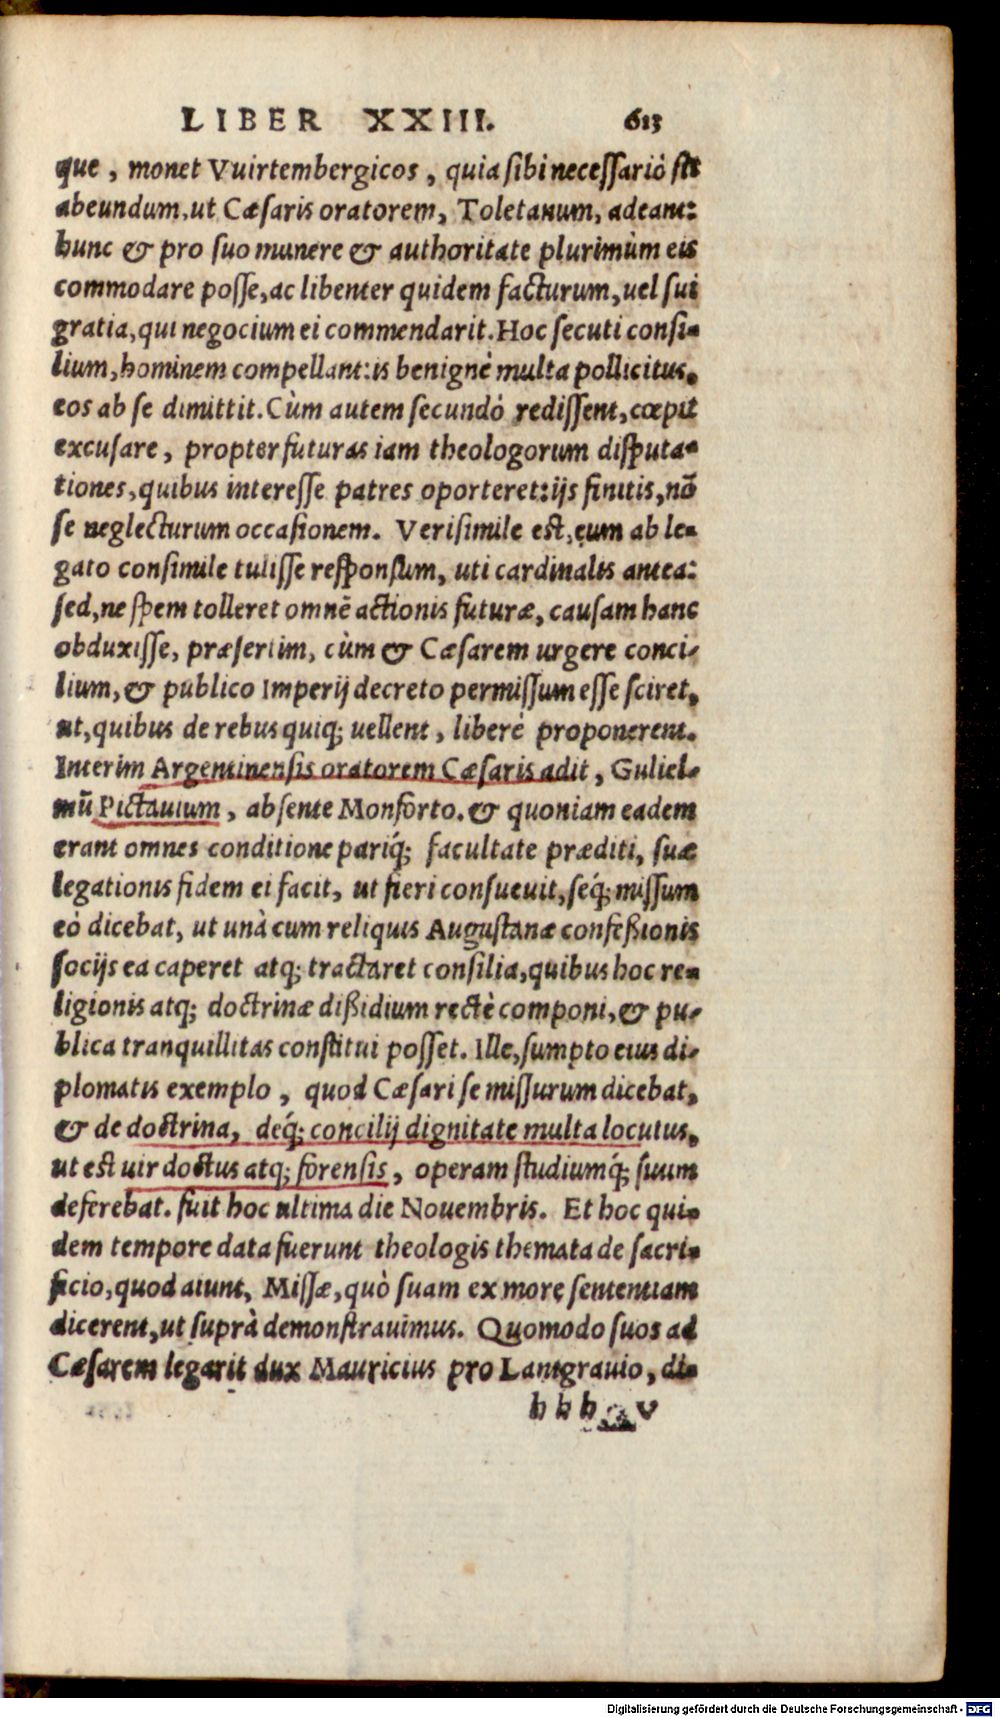 LIBER XXIII. 613
que, monet Vuirtembergicos, quia sibi necessariò sit
abeundum, ut Cæsaris oratorem, Toletanum, adeant:
hunc & pro suo munere & authoritate plurimùm eis
commodare posse, ac libenter quidem facturum, uel sui
gratia, qui negocium ei commendarit. Hoc secuti consi-
lium, hominem compellant: is benignè multa pollicitus,
eos ab se dimittit. Cùm autem secundò redissent, cœpit
excusare, propter futuras iam theologorum disputa-
tiones, quibus interesse patres oporteret: ijs finitis, nō
se neglecturum occasionem. Verisimile est, eum ab le-
gato consimile tulisse responsum, uti cardinalis antea:
sed, ne spem tolleret omnē actionis futuræ, causam hanc
obduxisse, præsertim, cùm & Cæsarem urgere conci-
lium, & publico Imperij decreto permissum esse sciret,
ut, quibus de rebus quiq; uellent, liberè proponerent.
Interim Argentinensis oratorem Cæsaris adit, Guliel-
mū Pictauium, absente Monforto. & quoniam eadem
erant omnes conditione pariq́; facultate præditi, suæ
legationis fidem ei facit, ut fieri consueuit, seq́; missum
eò dicebat, ut unà cum reliquis Augustanæ confeßionis
socijs ea caperet atq; tractaret consilia, quibus hoc re-
ligionis atq; doctrinæ dißidium rectè componi, & pu-
blica tranquillitas constitui posset. Ille, sumpto eius di-
plomatis exemplo, quod Cæsari se missurum dicebat,
& de doctrina, deq́; concilij dignitate multa locutus,
ut est uir doctus atq; forensis, operam studiumq́; suum
deferebat. fuit hoc ultima die Nouembris. Et hoc qui-
dem tempore data fuerunt theologis themata de sacri-
ficio, quod aiunt, Missæ, quò suam ex more sententiam
dicerent, ut suprà demonstrauimus. Quomodo suos ad
Cæsarem legarit dux Mauricius pro Lantgrauio, di-
hhh v
Digitalisierung gefördert durch die Deutsche Forschungsgemeinschaft - DFG